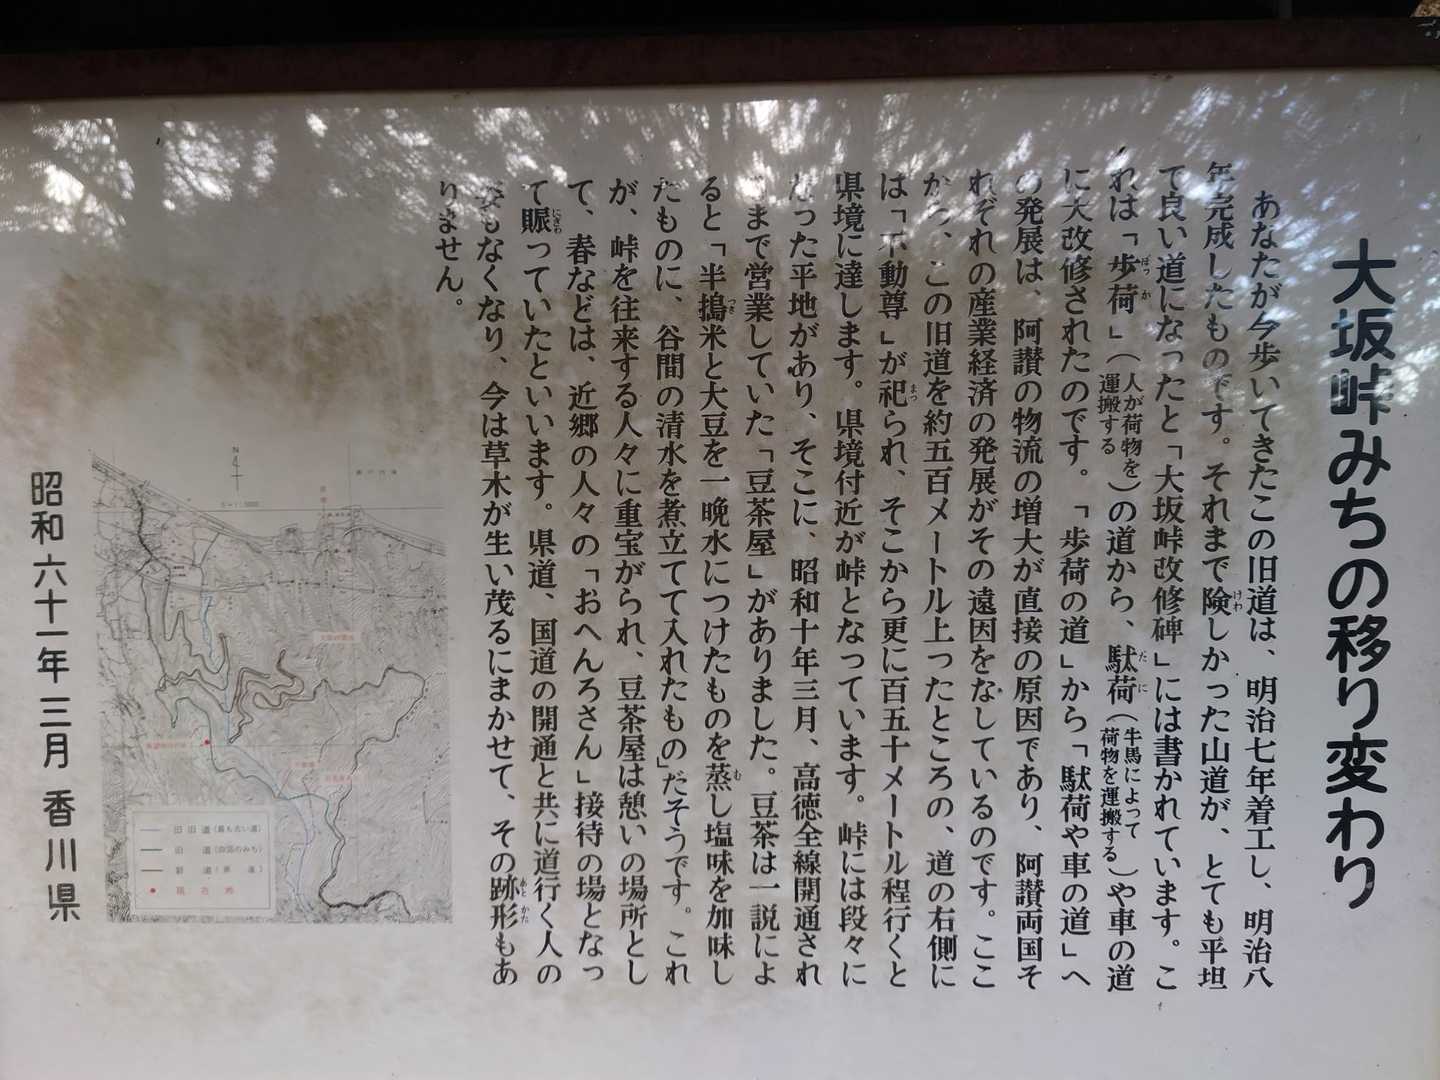 大坂峠みちの移り変わり
あなたが今歩いてきたこの旧道は、明治七年着工し、明治八
年完成したものです。それまで険しかった山道が、とても平坦
て良い道になったと「大坂峠改修碑」には書かれています。こ
れは「歩荷」（人が荷物を運搬する）の道から、駄荷（牛馬によって荷物を運搬する）や車の道
に大改修されたのです。「歩荷の道」から「駄荷や車の道」へ
の発展は、阿讃の物流の増大が直接の原因であり、阿讃両国そ
れぞれの産業経済の発展がその遠因をなしているのです。ここ
から、この旧道を約五百メートル上ったところの、道の右側に
は「不動尊」が祀られ、そこから更に百五十メートル程行くと
県境に達します。県境付近が峠となっています。峠には段々に
なった平地があり、そこに、昭和十年三月、高徳全線開通され
まで営業していた「豆茶屋」がありました。豆茶は一説によ
ると「半搗米と大豆を一晩水につけたものを蒸し塩味を加味し
たものに、谷間の清水を煮立てて入れたもの」だそうです。これ
が、峠を往来する人々に重宝がられ、豆茶屋は憩いの場所とし
て、春などは、近郷の人々の「おへんろさん」接待の場となっ
て賑っていたといいます。県道、国道の開通と共に道行く人の
姿もなくなり、今は草木が生い茂るにまかせて、その跡形もあ
りません。
昭和六十一年三月 香川県
N
旧旧道（最も古い道）
旧道（四国のみち）
新道（県道）
現在地